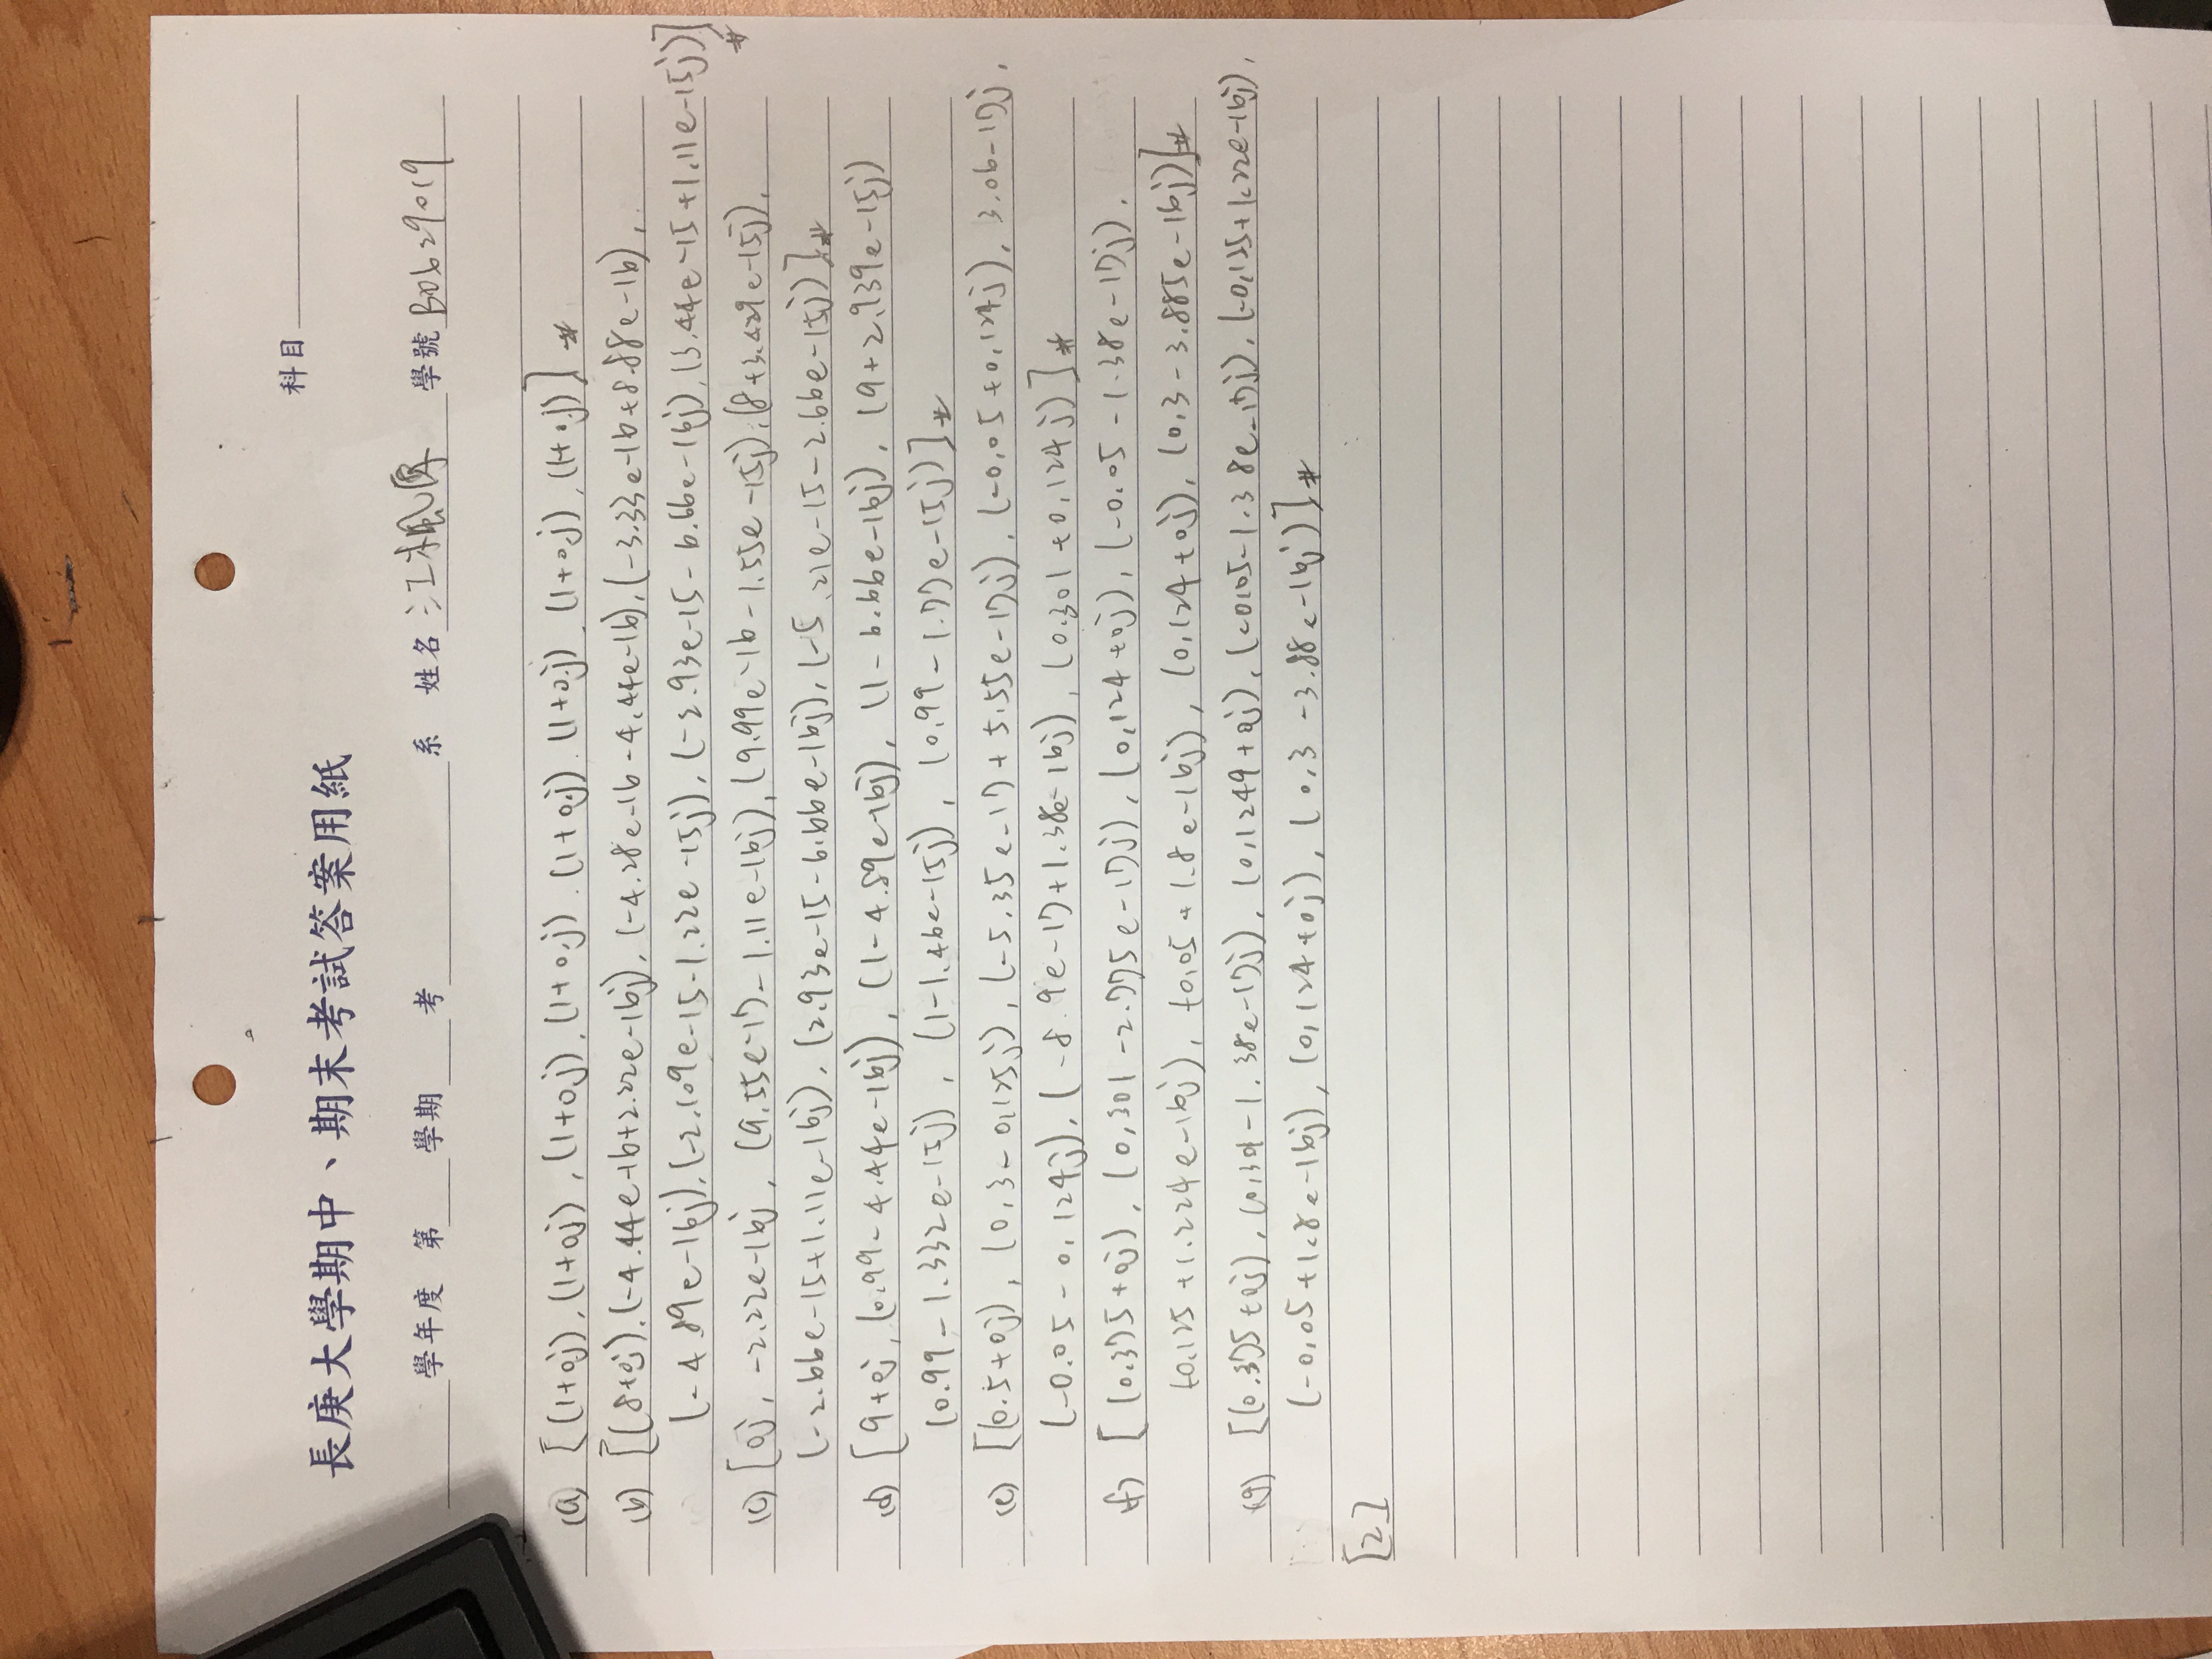 科目
長庚大學期中、期末考試答案用紙
學年度 第 學期 考 系 姓名 江楓 學號 B0629019
(a) [(1+0j), (1+0j), (1+0j), (1+0j), (1+0j), (1+0j), (1+0j), (1+0j)] #
(b) [(8+0j), (-4.44e-16+2.22e-16j), (-4.28e-16-4.44e-16), (-3.33e-16+8.88e-16),
(-4.89e-16j), (-2.109e-15-1.22e-15j), (-2.93e-15-6.66e-16j), (3.44e-15+1.11e-15j)]
#
(c) [0j, -2.22e-16j, (9.55e-17-1.11e-16j), (9.99e-16-1.55e-15j), (8+3.429e-15j),
(-2.66e-15+1.11e-16j), (2.93e-15-6.66e-16j), (-5.21e-15-2.66e-15j)] #
(d) [9+0j, (0.99-4.44e-16j), (1-4.89e-16j), (1-6.66e-16j), (9+2.939e-15j)
(0.99-1.332e-15j), (1-1.46e-15j), (0.99-1.77e-15j)] #
(e) [(0.5+0j), (0.3-0.125j), (-5.35e-17+5.55e-17j), (-0.05+0.124j), 3.06-17j,
(-0.05-0.124j), (-8.9e-17+1.38e-16j), (0.301+0.124j)] #
(f) [(0.375+0j), (0.301-2.775e-17j), (0.124+0j), (-0.05-1.38e-17j),
(-0.125+1.224e-16j), (-0.05+1.8e-16j), (0.124+0j), (0.3-3.885e-16j)] #
(g) [(0.375+0j), (0.301-1.38e-17j), (0.1249+0j), (-0.05-1.38e-17j), (-0.125+1.22e-16j),
(-0.05+1.8e-16j), (0.124+0j), (0.3-3.88e-16j)] #
[2]